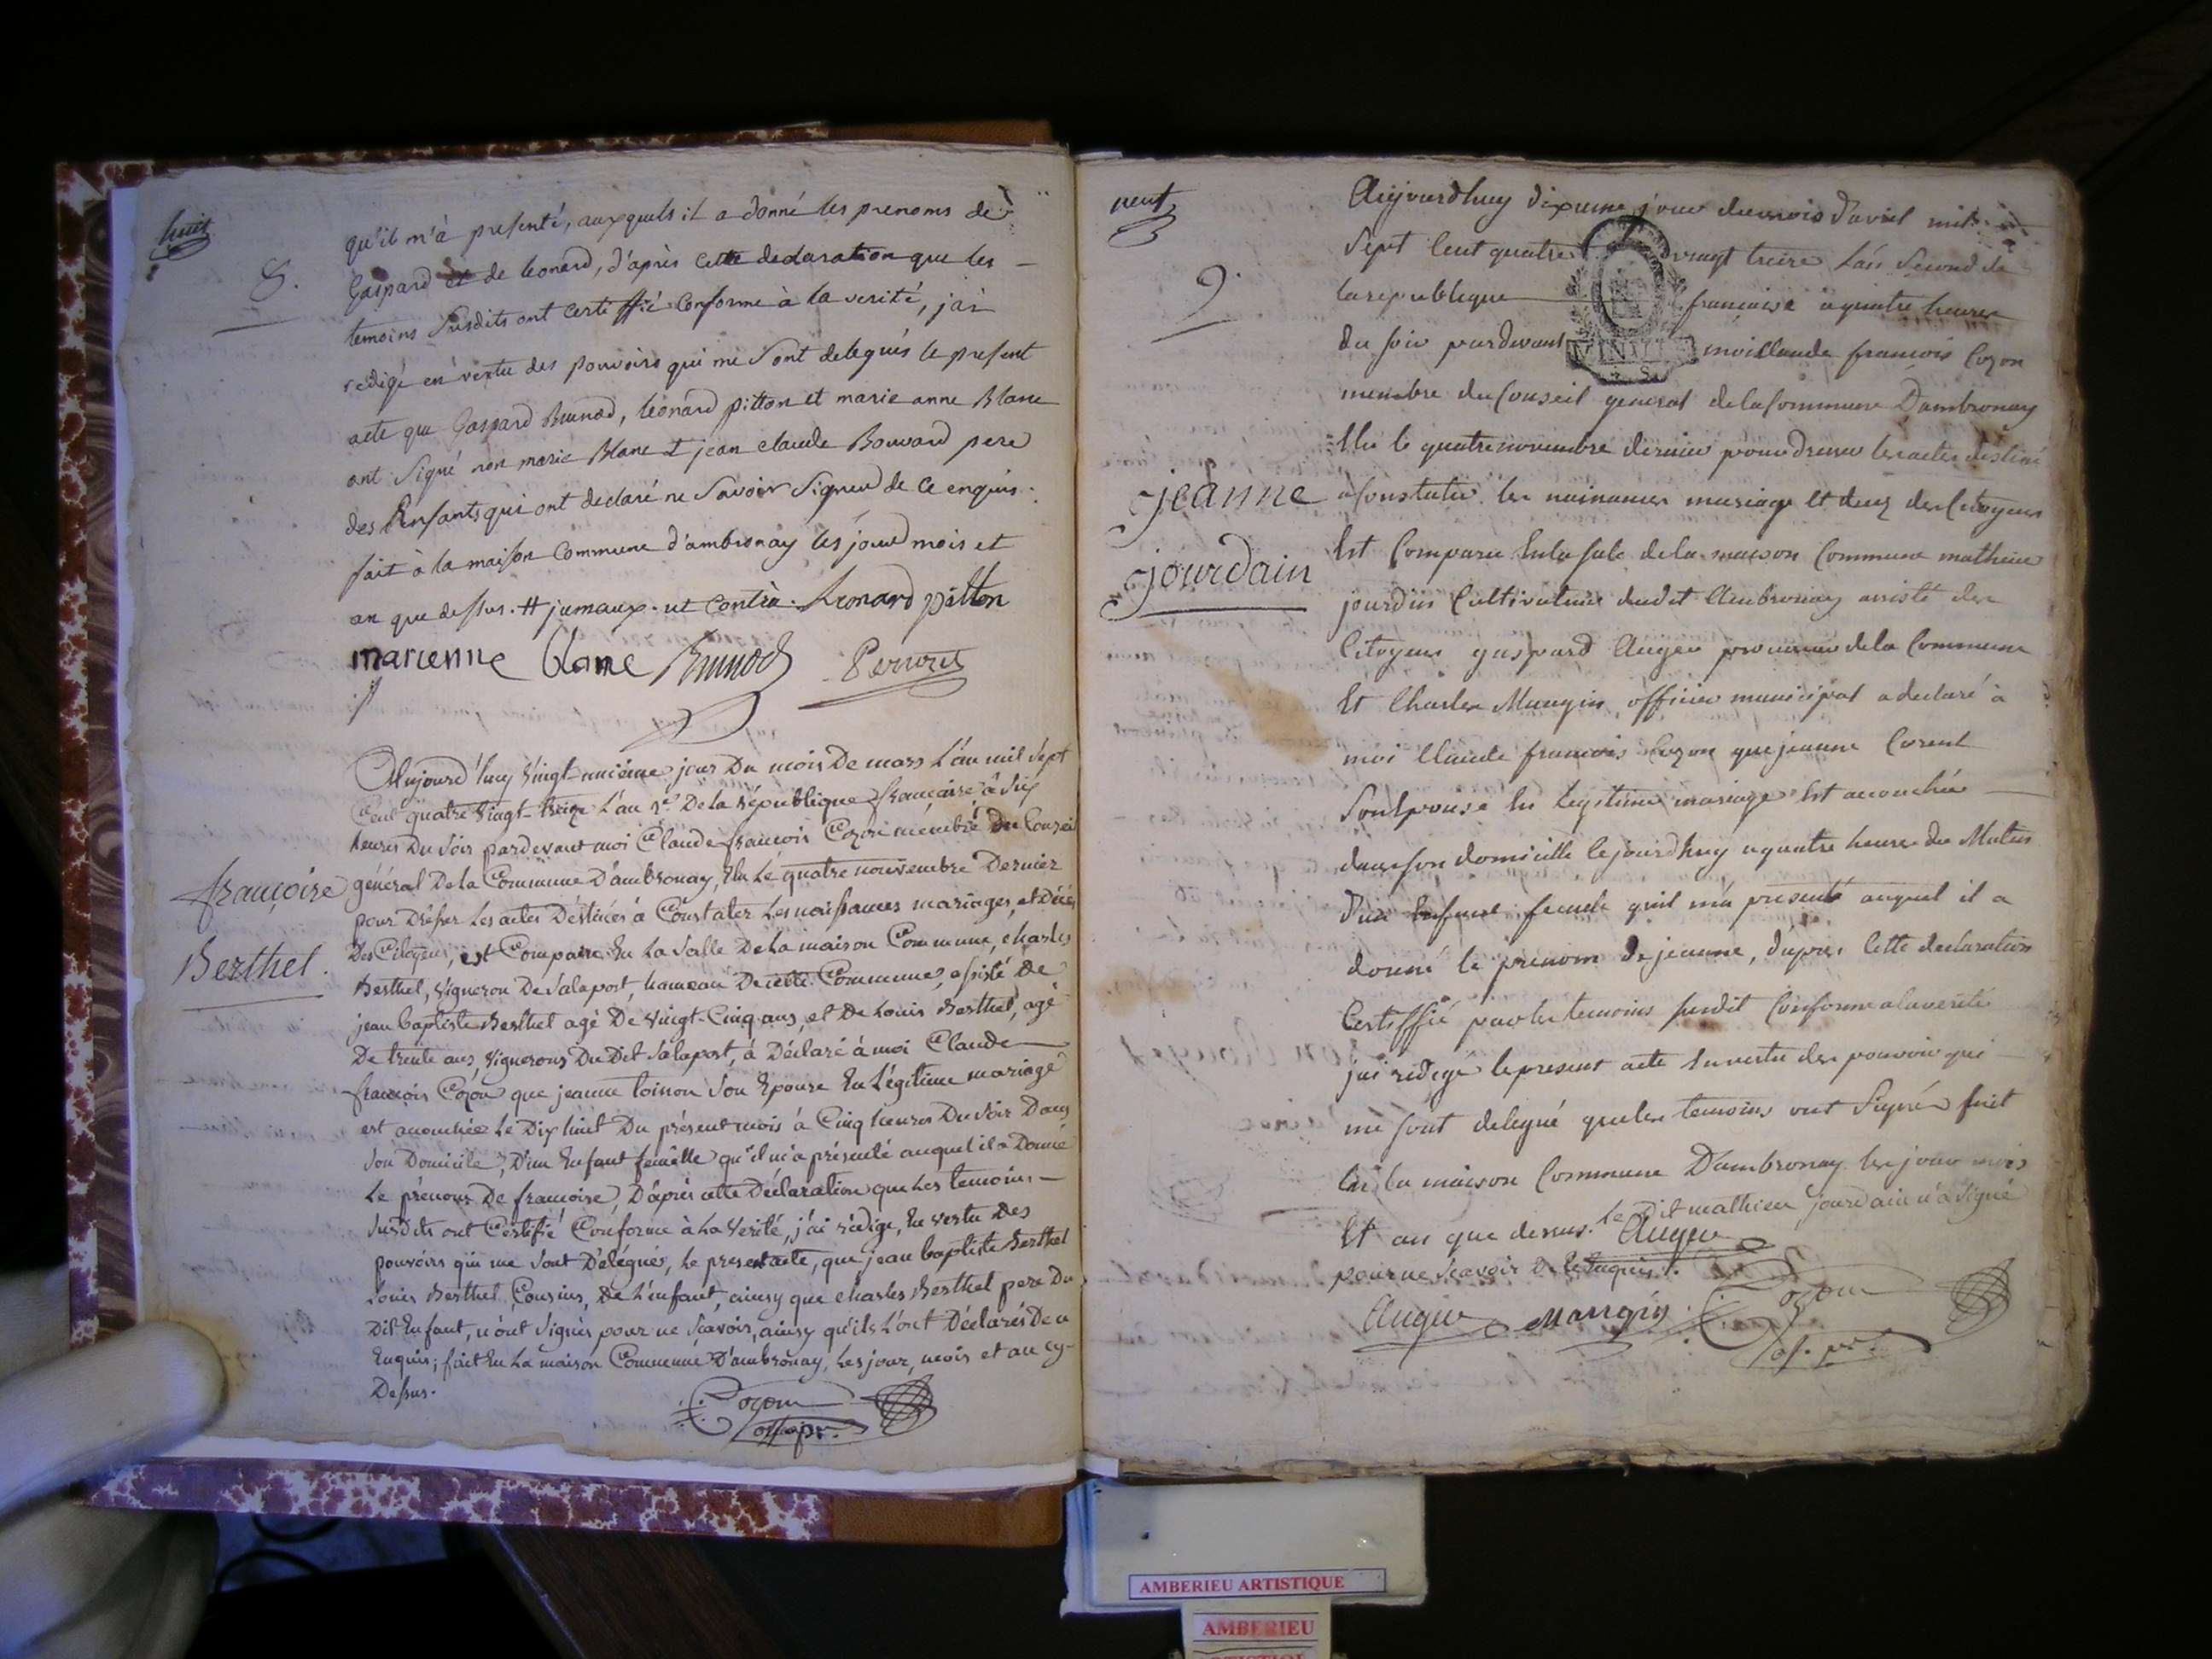 huit
8.
qu'il m'à presenté, auxquels il a donné les prenoms de
Gaspard et de leonard, d'après cette declaration que les
temoins susdits ont certiffié conforme à la verité, j'ai
redigé en vertu des pouvoirs qui me sont delegués le present
acte que Gaspard Brunod, leonard pitton et marie anne Blanc
ont signé non marie Blanc et jean claude Bouvard pere
des Enfants qui ont declaré ne savoir signer de ce enquis.
fait à la maison Commune d'ambronay les jour mois et
an que dessus. # jumaux. ut contrà. Leonard pitton
marienne blanc Brunod
Aujourd'huy vingt-unième jour Du mois De mars L'an mil Sept
Cent quatre vingt-treize L'an 2e De La République francaise à Six
heures Du Soir pardevant moi Claude francois Cozon membre Du Conseil
françoise
général De La Commune D'ambronay, Elu Le quatre novembre Dernier
pour Dresser Les actes Déstinés à Constater Les naissances mariages, et Décés
Des Citoyens, est Comparu En La Salle De La maison Commune, charles
Berthet.
Berthet, vigneron De Salaport, hameau De cette Commune, assisté De
jean baptiste Berthet agé De vingt-Cinq ans, et De Louis Berthet, agé
De trente ans, vignerons Du Dit Salaport, à Déclaré à moi Claude
francois Cozon que jeanne toinon Son Epouse En Légitime mariage
est accouchée Le Dix huit Du présent mois à Cinq heures Du Soir Dans
Son Domicile, D'un Enfant femelle qu'il m'a présenté auquel il a Donné
Le prénom De francoise, D'après cette Déclaration que Les temoins
Susdits ont Certifié Conforme à La Verité, j'ai rédigé, En vertu Des
pouvoirs qui me Sont Délégués, Le present acte, que jean baptiste Berthet
Louis Berthet Cousins, De L'enfant, ainsy que charles Berthet pere Du
Dit Enfant, n'ont Signés pour ne Scavoir, ainsy qu'ils L'ont Déclarés De ce
Enquis; fait En La maison Commune D'ambronay, Les jour, mois et an cy-
Dessus.
Cozon
off. pr.
neuf
9.
Aujourdhuy dixieme jour du mois d'avril mil
Sept Cent quatre vingt treize L'an Second de
la republique francaise a quatre heures
du soir pardevant moi Claude francois Cozon
membre du Conseil general de la Commune D'ambronay
Elu le quatre novembre dernier pour dresser les actes destiné
jeanne
a Constater les naissances mariage Et deces des Citoyens
Est Comparu En la sale de la maison Commune mathieu
jourdain
jourdin Cultivateur dudit Ambronay assisté des
Citoyens gaspard Auger procureur de la Commune
Et Charles Mangin officier municipal a declaré à
moi Claude francois Cozon que jeanne
Son Epouse En legitime mariage Est accouchée
dans son domicille cejourdhuy a quatre heures du Matin
d'un Enfant femele quil m'a presenté auquel il a
donné le prenom de jeanne, d'apres Cette declaration
Certiffié par les temoins susdit Conforme a la verité
jai redigé le present acte En vertu des pouvoir qui
me sont delegué que les temoins ont Signé fait
En la maison Commune D'ambronay les jour mois
Et an que dessus. le Dit mathieu jourdain n'a Signé
Auger
pour ne Scavoir de ce Enquis.
Auger Mangin Cozon
of. pr.
AMBERIEU ARTISTIQUE
AMBERIEU
ARTISTIQUE